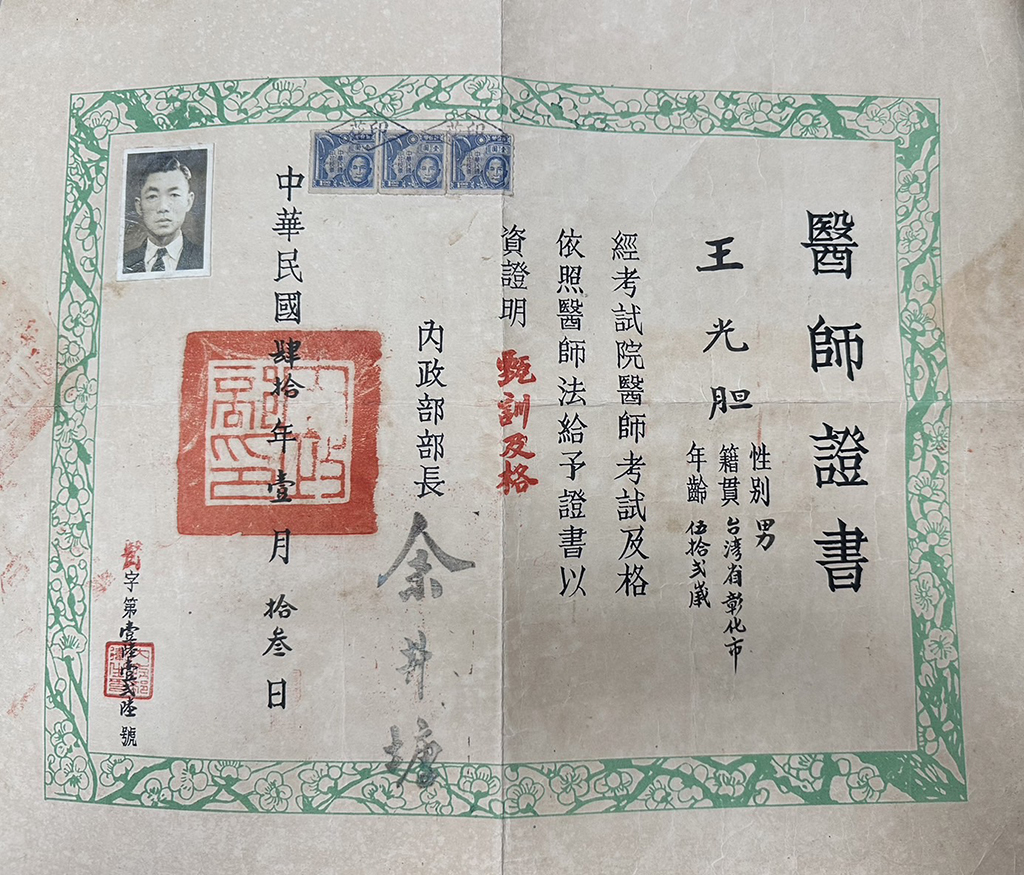 醫師證書
王光胆
性別男
籍貫台湾省彰化市
年齡伍拾弍歲
經考試院醫師考試及格
依照醫師法給予證書以
資證明
甄訓及格
內政部部長
余井塘
中華民國肆拾年壹月拾叁日
字第壹陸壹弍陸號